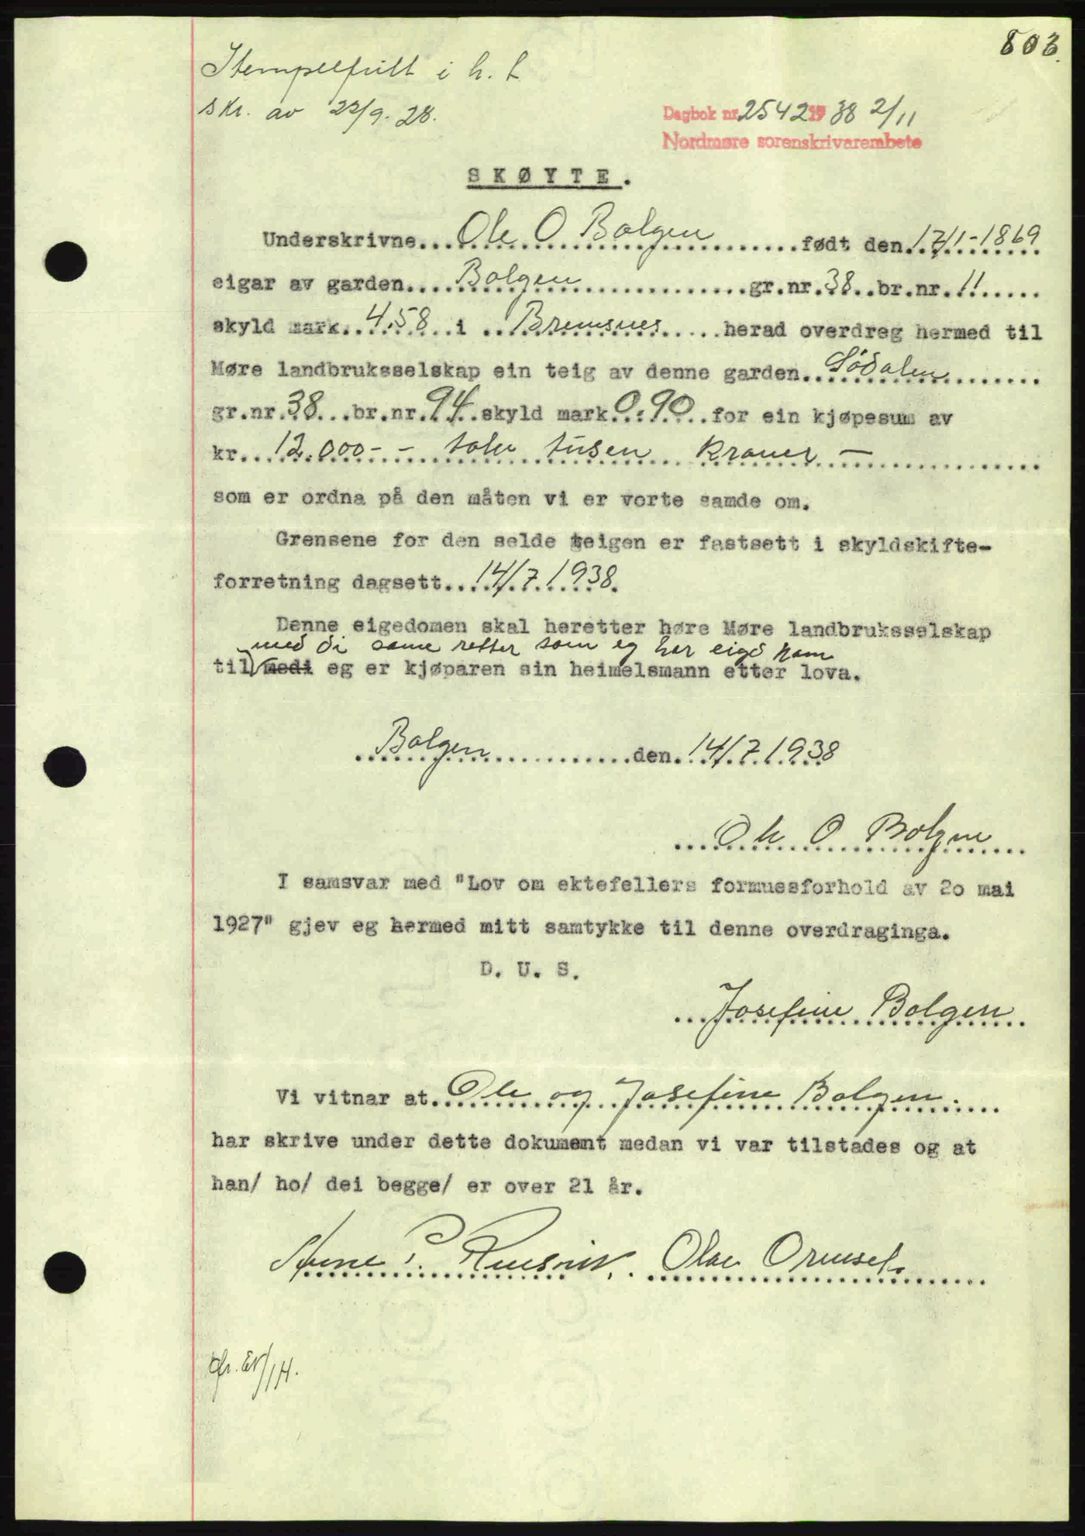 803.
Stempelfritt i h. t.
skr. av 22/9. 28.
Dagbok nr. 2542 1938 2/11
Nordmøre sorenskrivarembete
SKØYTE.
Underskrivne...Ole O Bolgen...født den 17/1-1869
eigar av garden...Bolgen...gr.nr.38..br.nr.11.....
skyld mark..4.58..i ..Bremsnes.....herad overdreg hermed til
Møre landbruksselskap ein teig av denne garden..Södalen.........
gr.nr.38...br.nr.94.skyld mark.0.90..for ein kjøpesum av
kr...12.000-- tolv tusen kroner —
som er ordna på den måten vi er vorte samde om.
Grensene for den selde teigen er fastsett i skyldskifte-
forretning dagsett...14/7.1938.
Denne eigedomen skal heretter høre Møre landbruksselskap
med di same retter som eg har eigd ham
til medi eg er kjøparen sin heimelsmann etter lova.
..Bolgen..............den.14/7.1938
...Ole O Bolgen...
I samsvar med "Lov om ektefellers formuesforhold av 20 mai
1927" gjev eg hermed mitt samtykke til denne overdraginga.
D. U. S.
...Josefine Bolgen...
Vi vitnar at..Ole og Josefine Bolgen....
har skrive under dette dokument medan vi var tilstades og at
han/ ho/ dei begge/ er over 21 år.
P. Olav